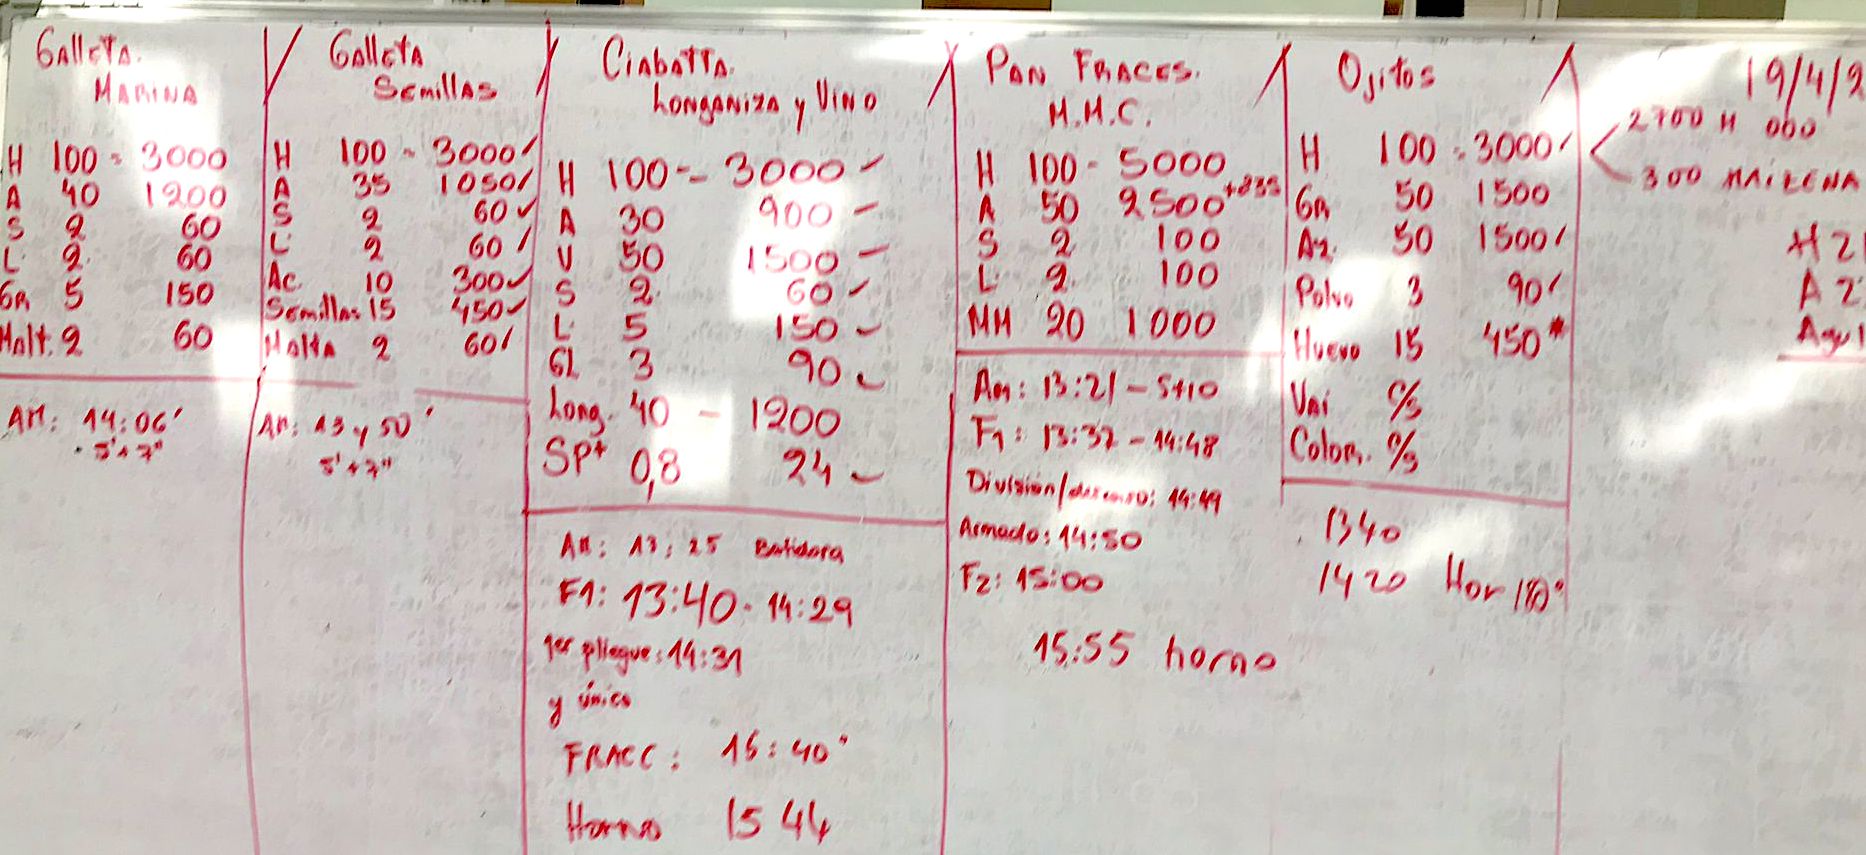 Galleta
Marina
H 100 - 3000
A 40 1200
S 2 60
L 2 60
GR 5 150
Malt. 2 60
AM: 14:06'
5'+7"
Galleta
Semillas
H 100 - 3000
A 35 1050
S 2 60
L 2 60
Ac. 10 300
Semillas 15 450
Malta 2 60
AM: 13 y 50'
5'+7"
Ciabatta
Longaniza y Vino
H 100 - 3000
A 30 900
V 50 1500
S 2 60
L 5 150
GL 3 90
Long. 40 - 1200
SP+ 0,8 24
AM: 13:25 Batidora
F1: 13:40 - 14:29
1er pliegue: 14:31
y único
FRACC: 15:40'
Horno 15 44
Pan Fraces.
M.M.C.
H 100 - 5000
A 50 2500 +835
S 2 100
L 2 100
MM 20 1000
Am: 13:21 - 5+10
F1: 13:37 - 14:48
División/descanso: 14:49
Armado: 14:50
F2: 15:00
15:55 horno
Ojitos
H 100 - 3000
GR 50 1500
Az. 50 1500
Polvo 3 90
Huevo 15 450*
Vai c/s
Color. c/s
1340
1420 Hor 180°
19/4/2
2700 H 000
300 MAIZENA
H 2
A 2